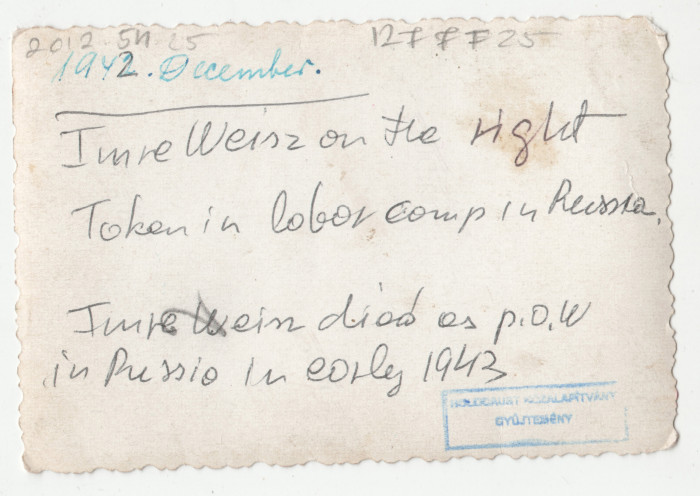 2012.54.25
1942. December.
Imre Weisz on the right
Taken in labor camp in Russia.
Imre Weisz died as p.O.W
in Russia in early 1943
HOLOCAUST KÖZALAPÍTVÁNY
GYŰJTEMÉNY